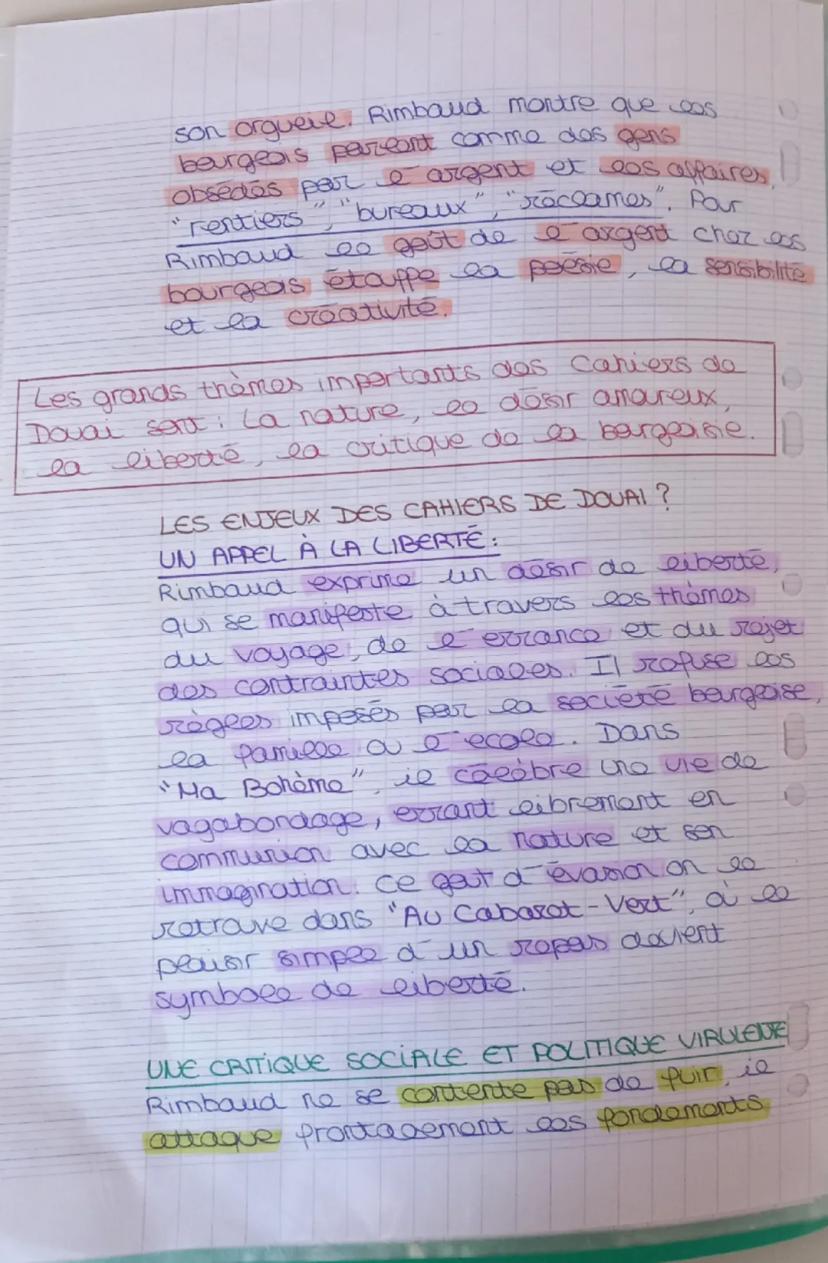 son orgueil. Rimbaud montre que les
bourgeois parlent comme des gens
obsédés par l'argent et les affaires,
"rentiers", "bureaux", "réclames". Pour
Rimbaud le goût de l'argent chez les
bourgeois étouffe la poésie, la sensibilité
et la créativité.
Les grands thèmes importants des Cahiers de
Douai sont : La nature, le désir amoureux,
la liberté, la critique de la bourgeoisie.
LES ENJEUX DES CAHIERS DE DOUAI ?
UN APPEL À LA LIBERTÉ :
Rimbaud exprime un désir de liberté,
qui se manifeste à travers les thèmes
du voyage, de l'errance et du rejet
des contraintes sociales. Il refuse les
règles imposés par la société bourgeoise,
la famille ou l'ecole. Dans
"Ma Bohème", il célèbre une vie de
vagabondage, errant librement en
communion avec la nature et son
immagination. Ce gout d'évasion on le
retrouve dans "Au Cabaret-Vert", où le
plaisir simple d'un repas devient
symbole de liberté.
UNE CRITIQUE SOCIALE ET POLITIQUE VIRULENTE
Rimbaud ne se contente pas de fuir, il
attaque frontalement les fondements